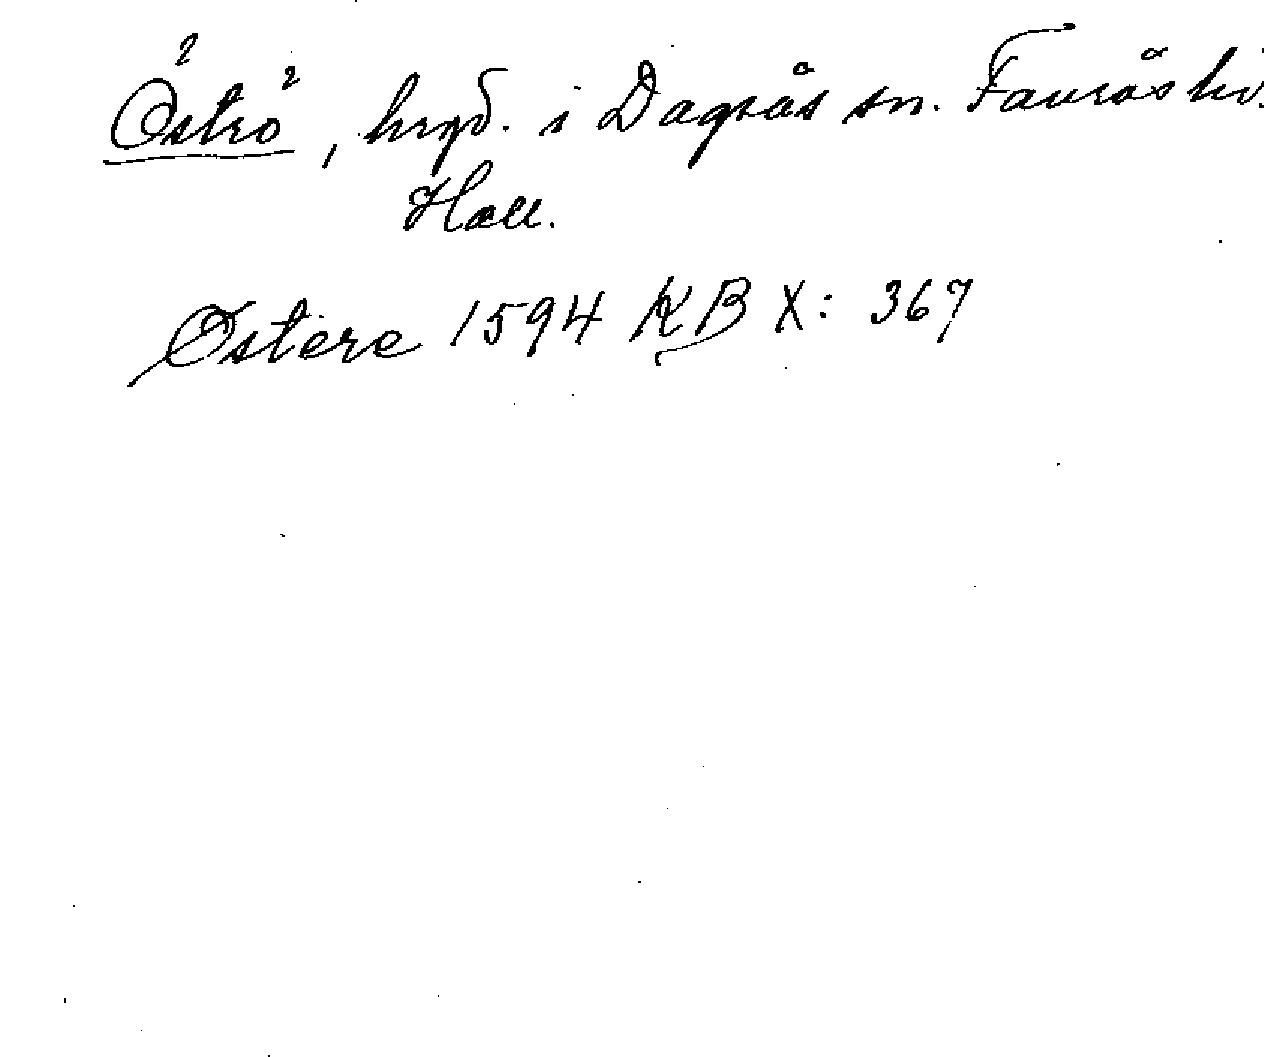 Öströ, hmd. i Dagsås sn. Faurås hd.
Hall.
Østere 1594 KB X: 367